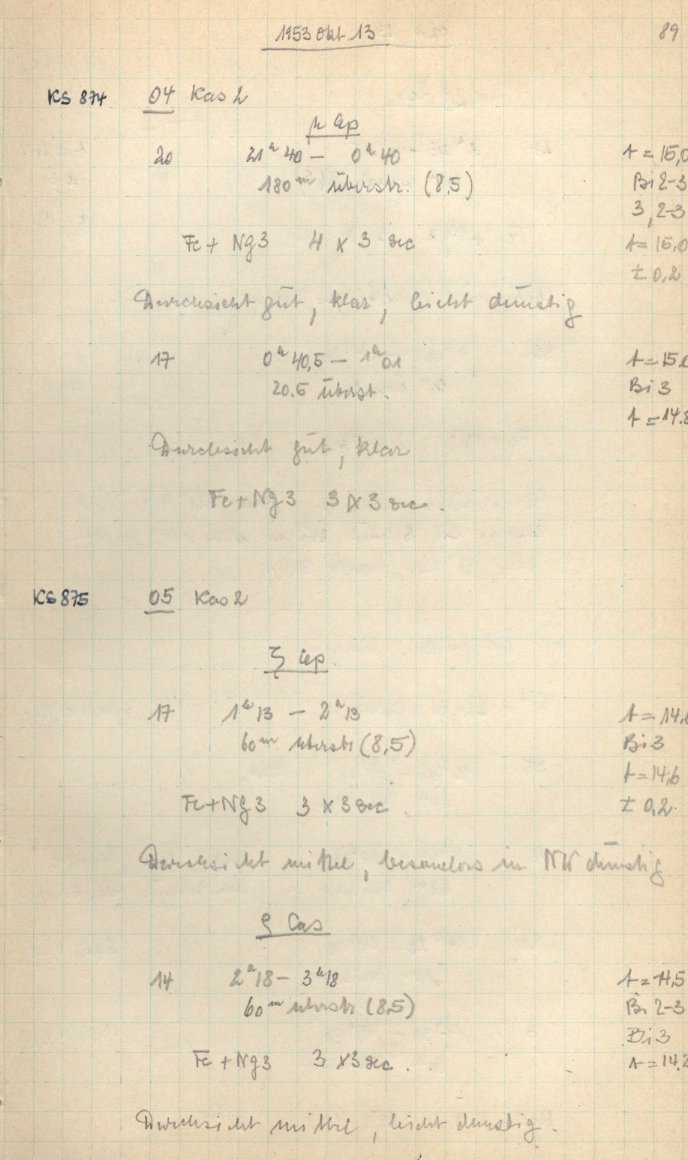 1953 Okt. 13
89
KS 874 04 Kas 2
μ Cep
20 21ʰ 40 — 0ʰ 40 t = 15,0
180ᵐ überstr. (8,5) Bi 2-3
3, 2-3
Fe + Ng3 4 x 3 sec t = 15,0
± 0,2
Durchsicht gut, klar, leicht dunstig
17 0ʰ 40,5 — 1ʰ 01
20.5 überst. Bi 3
t = 14.8
Durchsicht gut, klar
Fe + Ng3 3 x 3 sec.
KS 875 05 Kas 2
ζ Cep.
17 1ʰ 13 — 2ʰ 13
60ᵐ überstr (8,5) Bi 3
t = 14,6
Fe + Ng3 3 x 3 sec. ± 0,2
Durchsicht mittel, besonders im NW dunstig
ρ Cas
14 2ʰ 18 — 3ʰ 18
60ᵐ überstr (8,5) Bi 2-3
Bi 3
Fe + Ng3 3 x 3 sec. t = 14.2
Durchsicht mittel, leicht dunstig.